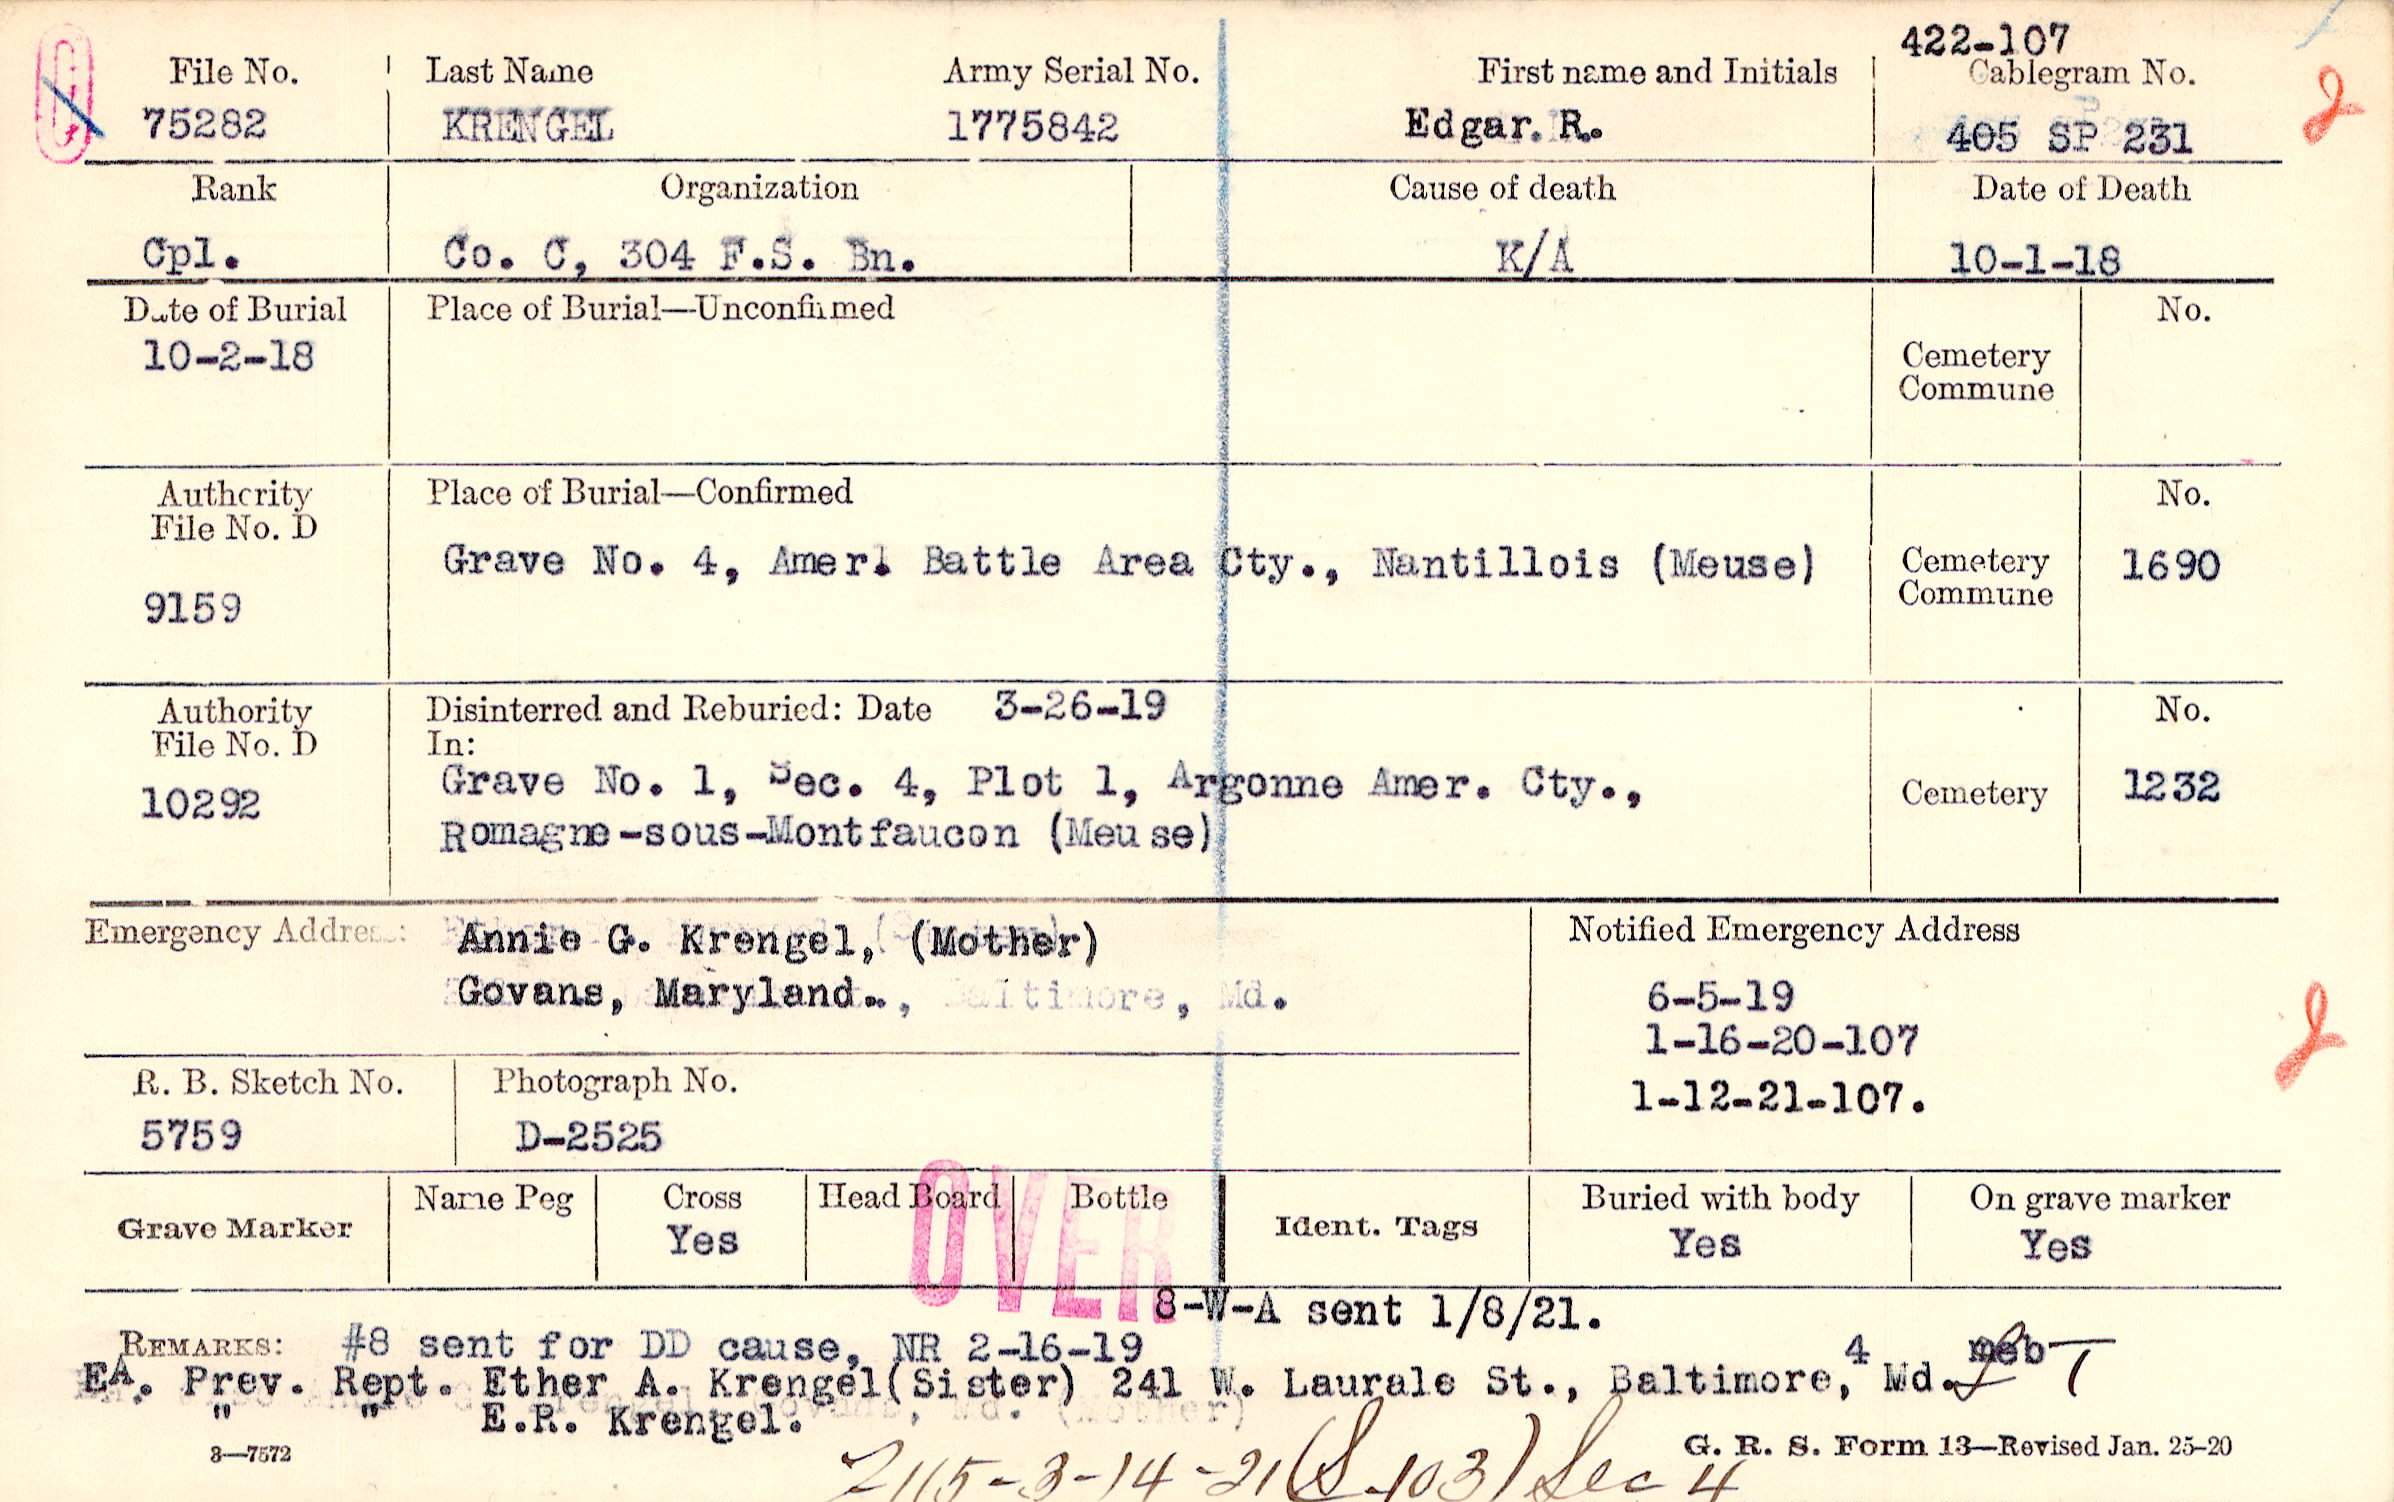 422-107
File No. Last Name Army Serial No. First name and Initials Cablegram No.
75282 KRENGEL 1775842 Edgar. R. 405 SP 231
Rank Organization Cause of death Date of Death
Cpl. Co. C, 304 F.S. Bn. K/A 10-1-18
Date of Burial Place of Burial—Unconfirmed No.
10-2-18
Cemetery
Commune
Authority Place of Burial—Confirmed No.
File No. D
Grave No. 4, Amer. Battle Area Cty., Nantillois (Meuse) Cemetery 1690
Commune
9159
Authority Disinterred and Reburied: Date 3-26-19 No.
File No. D In:
10292 Grave No. 1, Sec. 4, Plot 1, Argonne Amer. Cty., Cemetery 1232
Romagne-sous-Montfaucon (Meuse)
Emergency Address: Annie G. Krengel, (Mother) Notified Emergency Address
Govans, Maryland., Baltimore, Md.
6-5-19
1-16-20-107
1-12-21-107.
R. B. Sketch No. Photograph No.
5759 D-2525
Grave Marker Name Peg Cross Head Board Bottle Ident. Tags Buried with body On grave marker
Yes Yes Yes
OVER
8-W-A sent 1/8/21.
REMARKS: #8 sent for DD cause, NR 2-16-19 4 meb T
EA. Prev. Rept. Ether A. Krengel(Sister) 241 W. Laurale St., Baltimore, Md.
" " E.R. Krengel.
3—7572 G. R. S. Form 13—Revised Jan. 25-20
2115-3-14-21 (S-103) Sec 4